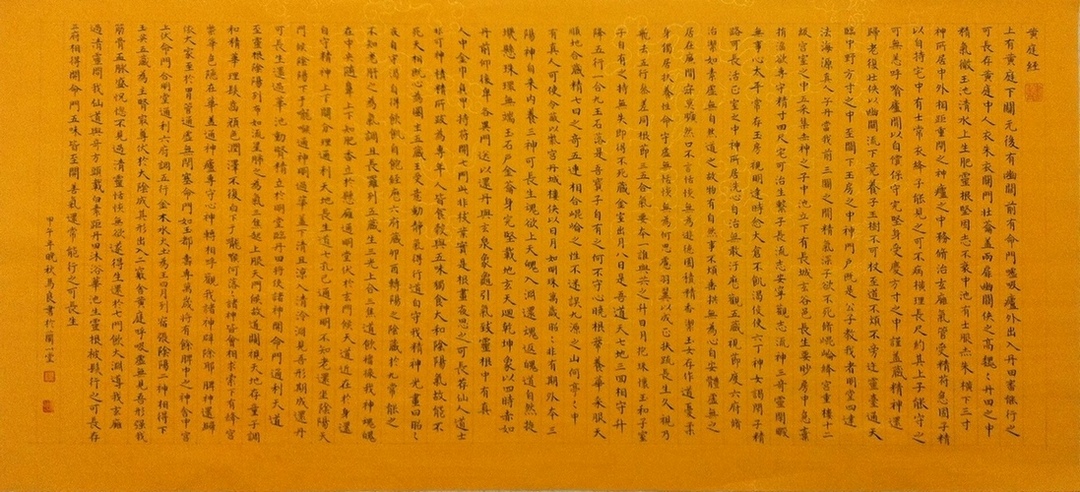 黄庭經
上有黄庭下關元後有幽闕前有命門噓吸廬外出入丹田審能行之
可長存黄庭中人衣朱衣關門壯蘥蓋兩扉幽闕俠之高巍〻丹田之中
精氣微玉池清水上生肥靈根堅固志不衰中池有士服赤朱橫下三寸
神所居中外相距重閉之神廬之中務脩治玄廱氣管受精符急固子精
以自持宅中有士常衣絳子能見之可不病橫理長尺約其上子能守之
可無恙呼噏廬間以自償保守完堅身受慶方寸之中謹蓋藏精神還
歸老復壯俠以幽闕流下竟養子玉樹不可杖至道不煩不旁迕靈臺通天
臨中野方寸之中至關下玉房之中神門户既是公子教我者明堂四達
法海源真人子丹當我前三關之間精氣深子欲不死脩崐崘絳宮重樓十二
級宮室之中五采集赤神之子中池立下有長城玄谷邑長生要眇房中急棄
捐淫欲專守精寸田尺宅可治生繫子長流志安寧觀志流神三奇靈閒暇
無事心太平常存玉房視明達時念大倉不飢渴役使六丁神女謁閉子精
路可長活正室之中神所居洗心自治無敢汙歷觀五藏視節度六府脩
治潔如素虛無自然道之故物有自然事不煩垂拱無為心自安體虛無之
居在廉間寂莫曠然口不言恬惔無為遊德園積精香潔玉女存作道憂柔
身獨居扶養性命守虛無恬惔無為何思慮羽翼以成正扶疏長生久視乃
飛去五行參差同根節三五合氣要本一誰與共之升日月抱珠懷玉和子室
子自有之持無失即得不死藏金室出月入日是吾道天七地三回相守升
降五行一合九玉石落〻是吾寶子自有之何不守心曉根蒂養華采服天
順地合藏精七日之奇五連相合崐崘之性不迷誤九源之山何亭〻中
有真人可使令蔽以紫宮丹城樓俠以日月如明珠萬歲昭〻非有期外本三
陽神自來内養三神可長生魂欲上天魄入淵還魂返魄道自然旋
璣懸珠環無端玉石户金籥身完堅載地玄天迴乾坤象以四時赤如
丹前仰後卑各異門送以還丹與玄泉象龜引氣致靈根中有真
人巾金巾負甲持符開七門此非枝葉實是根晝夜思之可長存仙人道士
非可神積精所致為專年人皆食穀與五味獨食大和陰陽氣故能不
死天相既心為國主五藏王受意動静氣得行道自守我精神光晝日昭〻
夜自守渴自得飲飢自飽經歷六府藏卯酉轉陽之陰藏於九常能之
不知老肝之為氣調且長羅列五藏生三光上合三焦道飲醬漿我神魂魄
在中央隨鼻上下知肥香立於懸廱通明堂伏於玄門候天道近在於身還
自守精神上下關分理通利天地長生道七孔已通不知老還坐陰陽天
門候陰陽下于嚨喉通神明過華蓋下清且涼入清泠淵見吾形期成還丹
可長生還過華池動腎精立於明堂臨丹田將使諸神開命門通利天道
至靈根陰陽列布如流星肺之為氣三焦起上服天門候故道闚視天地存童子調
和精華理髮齒顏色潤澤不復白下于嚨喉何落〻諸神皆會相求索下有絳宮
紫華色隱在華蓋通神廬專守心神轉相呼觀我諸神辟除邪脾神還歸
依大家至於胃管通虛無閉塞命門如玉都壽專萬歲將有餘脾中之神舍中宮
上伏命門合明堂通利六府調五行金木水火土為王日月列宿張陰陽二神相得下
玉英五藏為主腎最尊伏於大陰成其形出入二竅舍黄庭呼吸虛無見吾形強我
筋骨血脈盛恍惚不見過清靈恬惔無欲遂得生還於七門飲大淵導我玄廱
過清靈問我仙道與奇方頭載白素距丹田沐浴華池生靈根被髮行之可長存
三府相得開命門五味皆至開善氣還常能行之可長生
甲午年晚秋馬良書於蘭一堂